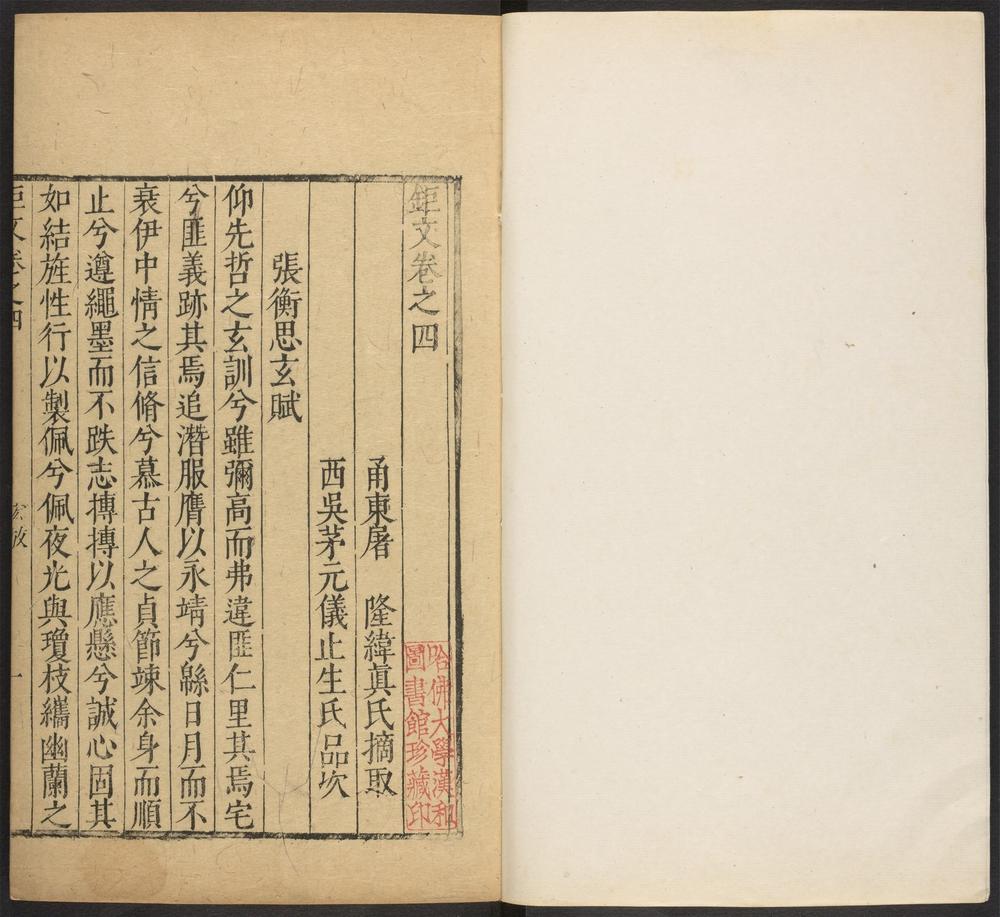 鉅文卷之四
甬東屠　隆緯眞氏摘取
西吳茅元儀止生氏品次
張衡思玄賦
仰先哲之玄訓兮雖彌高而弗違匪仁里其焉宅
兮匪義跡其焉追潛服膺以永靖兮緜日月而不
衰伊中情之信脩兮慕古人之貞節竦余身而順
止兮遵繩墨而不跌志摶摶以應懸兮誠心固其
如結旌性行以製佩兮佩夜光與瓊枝纗幽蘭之
鉅文卷之四
宏放
一
哈佛大學漢和
圖書館珍藏印